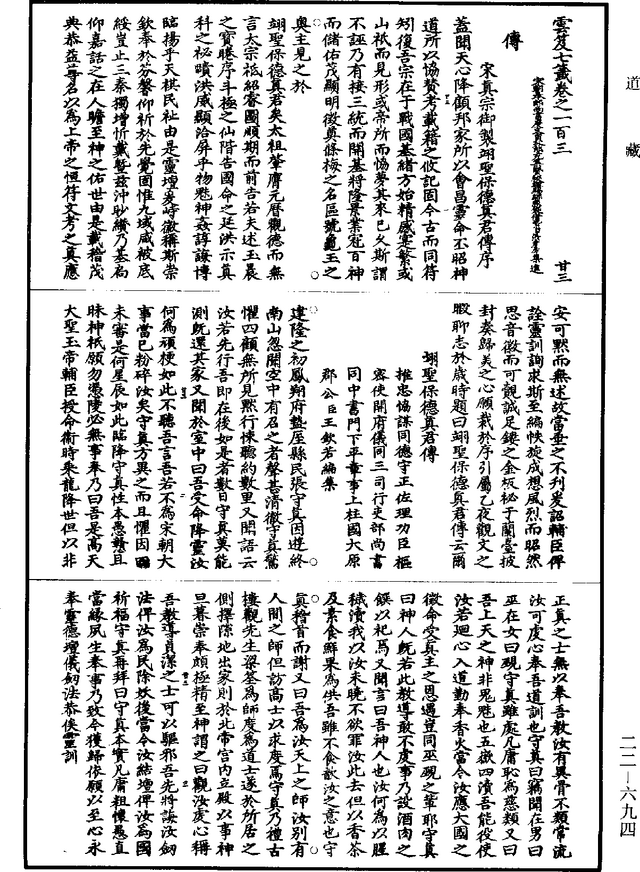 道
藏
雲笈七籤卷之一百三　廿三
傳
宋真宗御製翊聖保德真君傳序
蓋聞天心降顧邦家所以會昌靈命丕昭神
道所以協贊考載籍之攸記固今古而同符
矧復吾宗在于戰國基緒方始精感寔繁或
山祇而見形或帝所而恊夢其來已久斯謂
不誣乃有接三統而開基將隆景業冠百神
而儲佑茂顯明徵奠條梅之名區號龜玉之
奧主見之於
翊聖保德真君矣太祖肇膺元曆觀德而無
言太宗祗紹睿圖順期而前告若夫述玉晨
之寶勝序斗極之仙階告國命之延洪示真
科之祕賾洪威顯洽屏乎物魅神姦諄諄博
臨揚乎天棋民祉由是靈壇爰峙徽稱斯崇
欽奉於芬馨仰祈於先覺固惟九域咸被底
綏豈止三秦獨增忻戴暨茲沖眇纘乃基扃
仰嘉話之在人瞻至神之佑世由是載稽茂
典恭益尊名以為上帝之恒符文考之真應
安可黙而無述故當垂之不刊爰詔輔臣俾
詮靈訓詢求斯至編帙旋成想風烈而昭然
思音徽而可覿誠足鏤之金板祕于蘭臺披
封奏歸美之心願載於序引屬乙夜觀文之
暇聊志於歲時題曰翊聖保德真君傳云爾
翊聖保德真君傳
推忠協謀同德守正佐理功臣樞
密使開府儀同三司行吏部尚書
同中書門下平章事上柱國太原
郡公臣王欽若編集
建隆之初鳳翔府盩厔縣民張守真因遊終
南山忽聞空中有召之者聲甚清徹守真驚
懼四顧無所見黙行悚聽約數里又聞語云
汝若先行吾即在後如是者數日守真莫能
測旣還其家又聞於室中曰吾受命降靈汝
何為頑梗如此不聽吾言吾若不為宋朝大
事當已粉碎汝矣守真方異之而且懼因曰
未審是何星辰如此臨降守真性本愚憃且
昧神祇願勿慿陵必無事奉乃曰吾是高天
大聖玉帝輔臣授命衞時乘龍降世但以非
正真之士無以奉吾教汝有異骨不類常流
汝可虔心奉吾道訓也守真曰竊聞在男曰
巫在女曰覡守真雖處凡庸恥為慈類又曰
吾上天之神非鬼魅也五嶽四瀆吾能役使
汝若迴心入道勤奉香火當令汝應大國之
徵命受真主之恩遇豈同巫覡之輩耶守真
曰神人旣若此教導敢不度事乃設酒肉之
饌以祀焉又聞言曰吾神人也汝何為以腥
穢瀆我以汝未曉不欲罪汝此去但以香茶
及素食鮮果為供吾雖不食歆汝之意也守
真稽首而謝又曰吾為汝天上之師汝別有
人間之師但訪高士以求度焉守真乃禮古
樓觀先生梁筌為師度為道士遂於所居之
側擇隙地出家則於此帝宮內立殿以事神
旦暮崇奉頗極精至神謂之曰觀汝虔心稱
吾教導真潔之士可以驅邪吾先將誨汝劒
法俾汝為民除妖後當令汝結壇俾汝為國
祈福守真再拜曰守真本實凡庸粗懷愚直
當緣夙生奉事乃致今獲歸依願以至心永
奉靈德壇儀劒法恭俟靈訓
二二—六九四